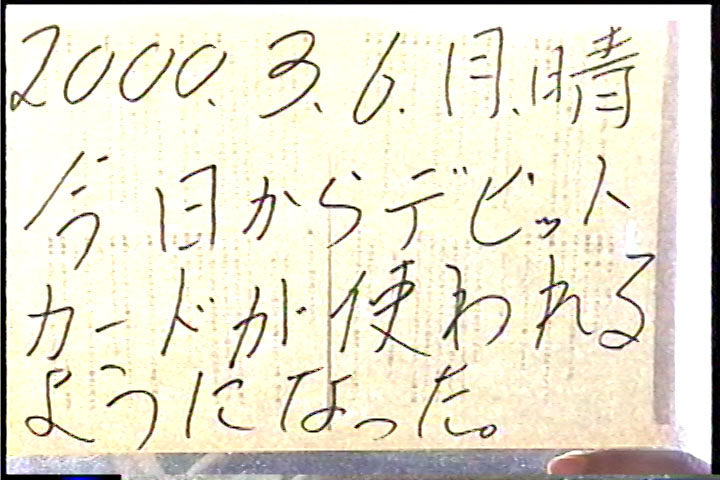 2000.3.6.月.晴
今日からデビット
カードが使われる
ようになった。